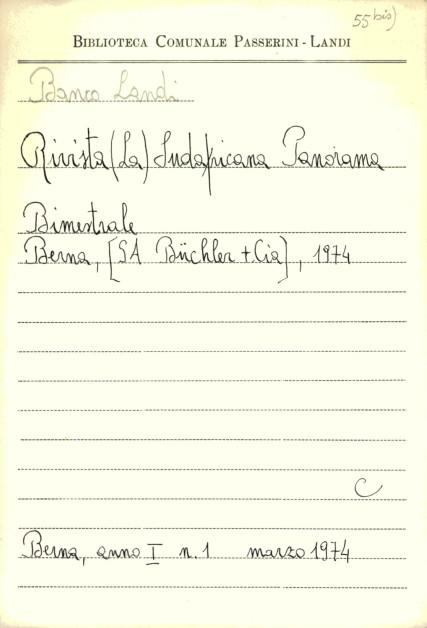 55 bis)
BIBLIOTECA COMUNALE PASSERINI - LANDI
Banco Landi
Rivista (La) Sudafricana Panorama
Bimestrale
Berna, [SA Büchler + Cia], 1974
C
Berna, anno I n. 1 marzo 1974